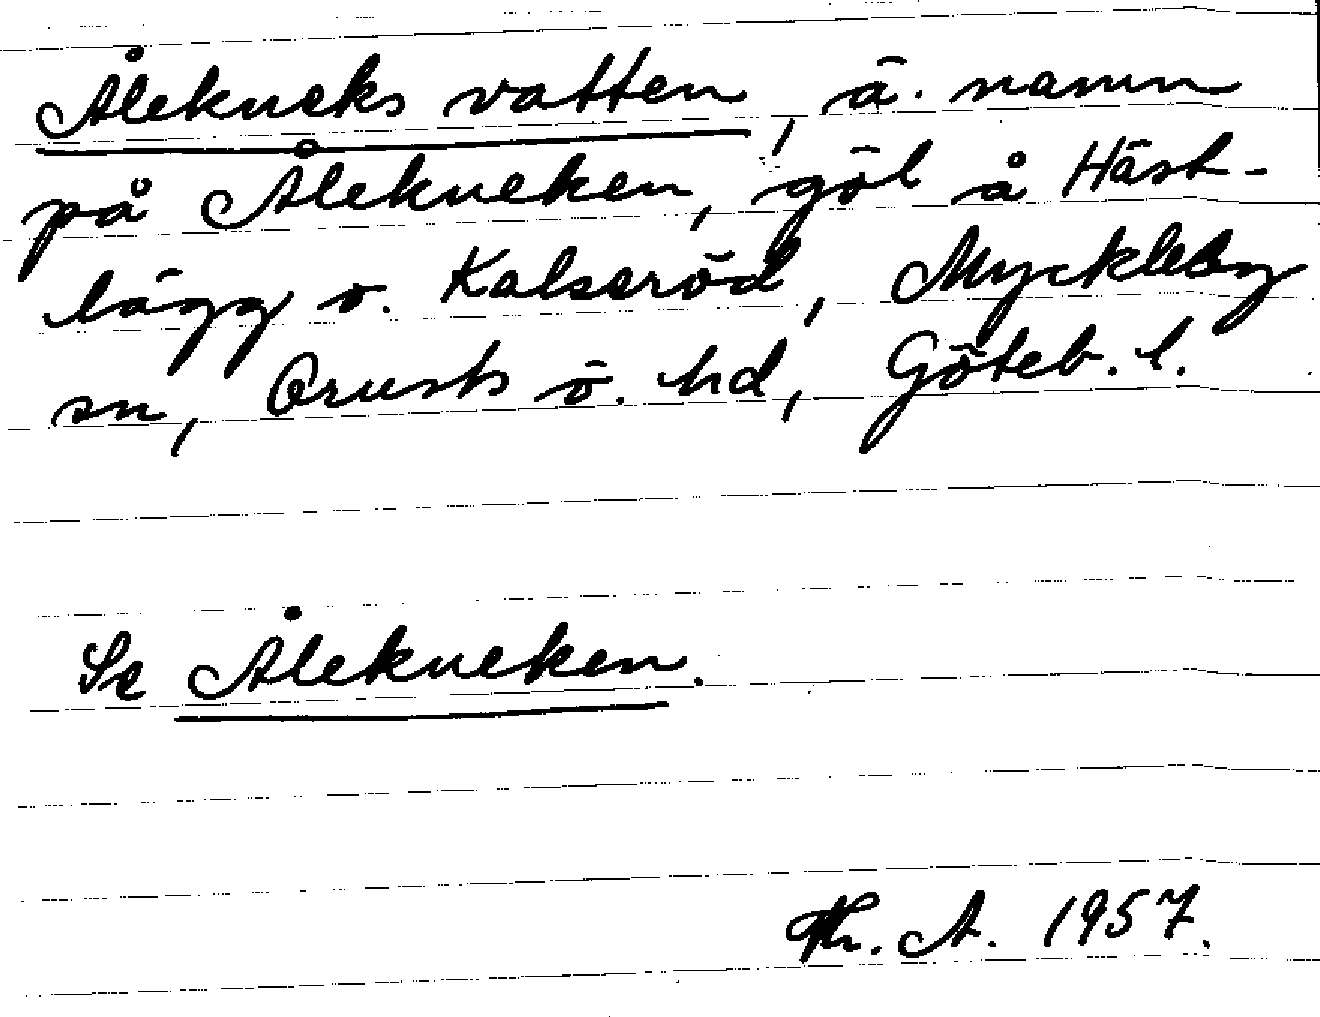 Ålekueks vatten, ä. namn
på Ålekueken, göl å Häst-
lägg o. Kalseröd, Myckleby
sn, Orusts ö. hd, Göteb. l.
Se Ålekueken.
Th. A. 1957.